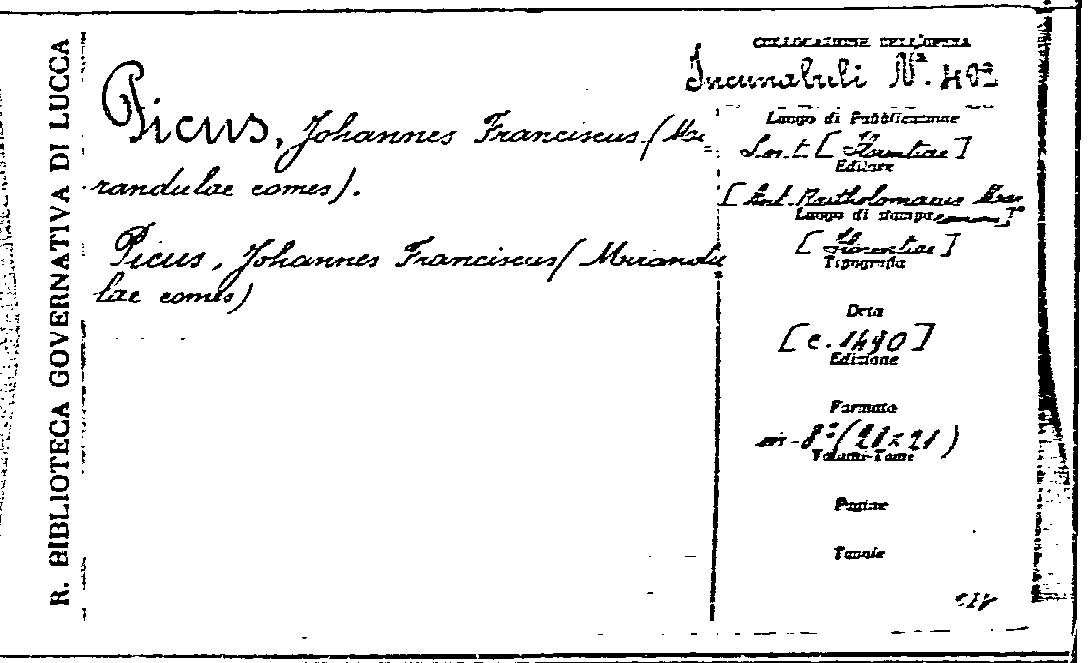 R. BIBLIOTECA GOVERNATIVA DI LUCCA
Picus, Johannes Franciscus (Mi=
randulae comes).
Picus, Johannes Franciscus (Mirandu
lae comes)
COLLOCAZIONE DELL'OPERA
Incunabuli Nº. 402
Luogo di Pubblicazione
S. n. t. [Florentiae]
Editore
[Ant. Bartholomaeus
Luogo di stampa
[Florentiae]
Tipografia
Data
[c. 1490]
Edizione
Formato
in-8º (21 x 21)
Volumi-Tomi
Pagine
Tavole